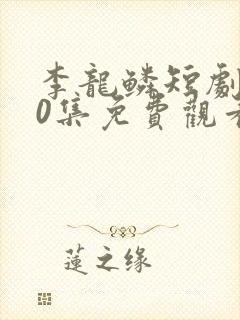 李龍鱗短劇
0集免費觀看
蓮之缘